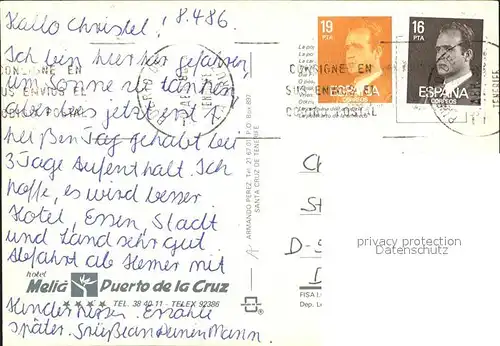 Hallo Christel! 18.4.86.
Ich bin hierher gefahren,
um Sonne zu tanken
Aber bis jetzt erst 1
heißen Tag gehabt bei
3 Tage Aufenthalt. Ich
hoffe, es wird besser
Hotel, Essen, Stadt
und Land sehr gut.
Abfahrt als Hemer mit
hotel
Meliá Puerto de la Cruz
★★★★ TEL. 38 40 11 - TELEX 92386
Kinder Erzähle
später. Grüße an Deinen Mann
ARMANDO PEREZ, Tel. 21 67 01 P.O. Box 897
SANTA CRUZ DE TENERIFE
19
PTA
ESPAÑA
CORREOS
16
PTA
ESPAÑA
CORREOS
CONSIGNE EN
SUS ENVIOS
CONSIGNE EN
SUS ENVIOS EL
POSTAL
D-S
privacy protection
Datenschutz
FISA
Dep. L